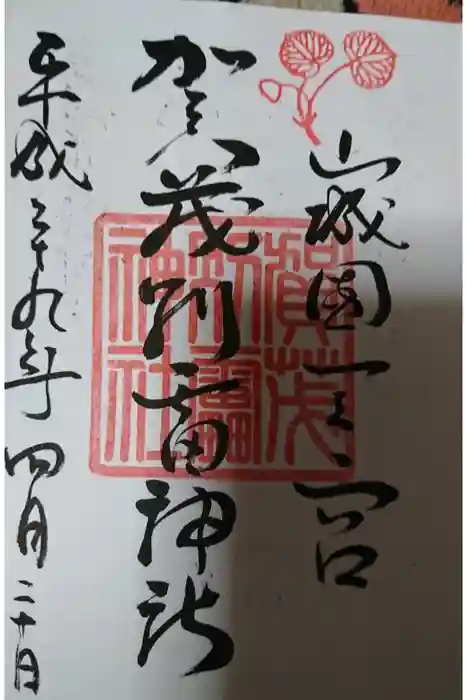 山城國一之宮
賀茂別雷神社
賀茂
別雷
神社
平成二十九年四月二十日